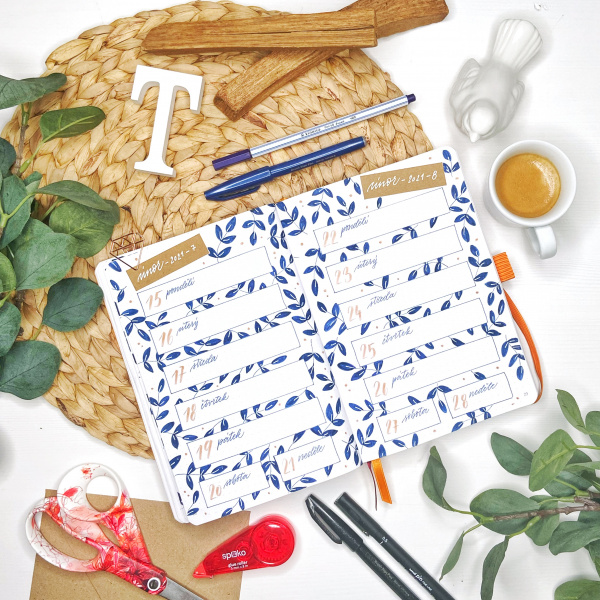 T
únor - 2021 - 7
15 pondělí
16 úterý
17 středa
18 čtvrtek
19 pátek
20 sobota
21 neděle
únor - 2021 - 8
22 pondělí
23 úterý
24 středa
25 čtvrtek
26 pátek
27 sobota
28 neděle
spoko